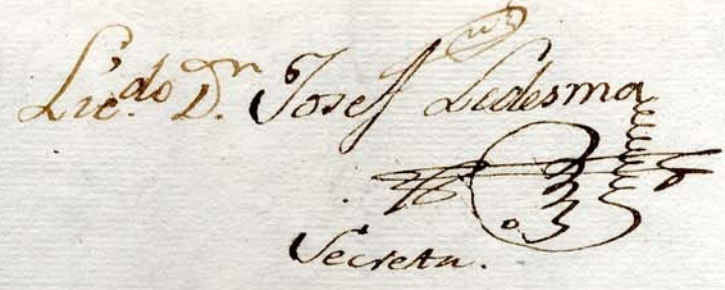 Lic.do D.n Josef Ledesma
Secreta.